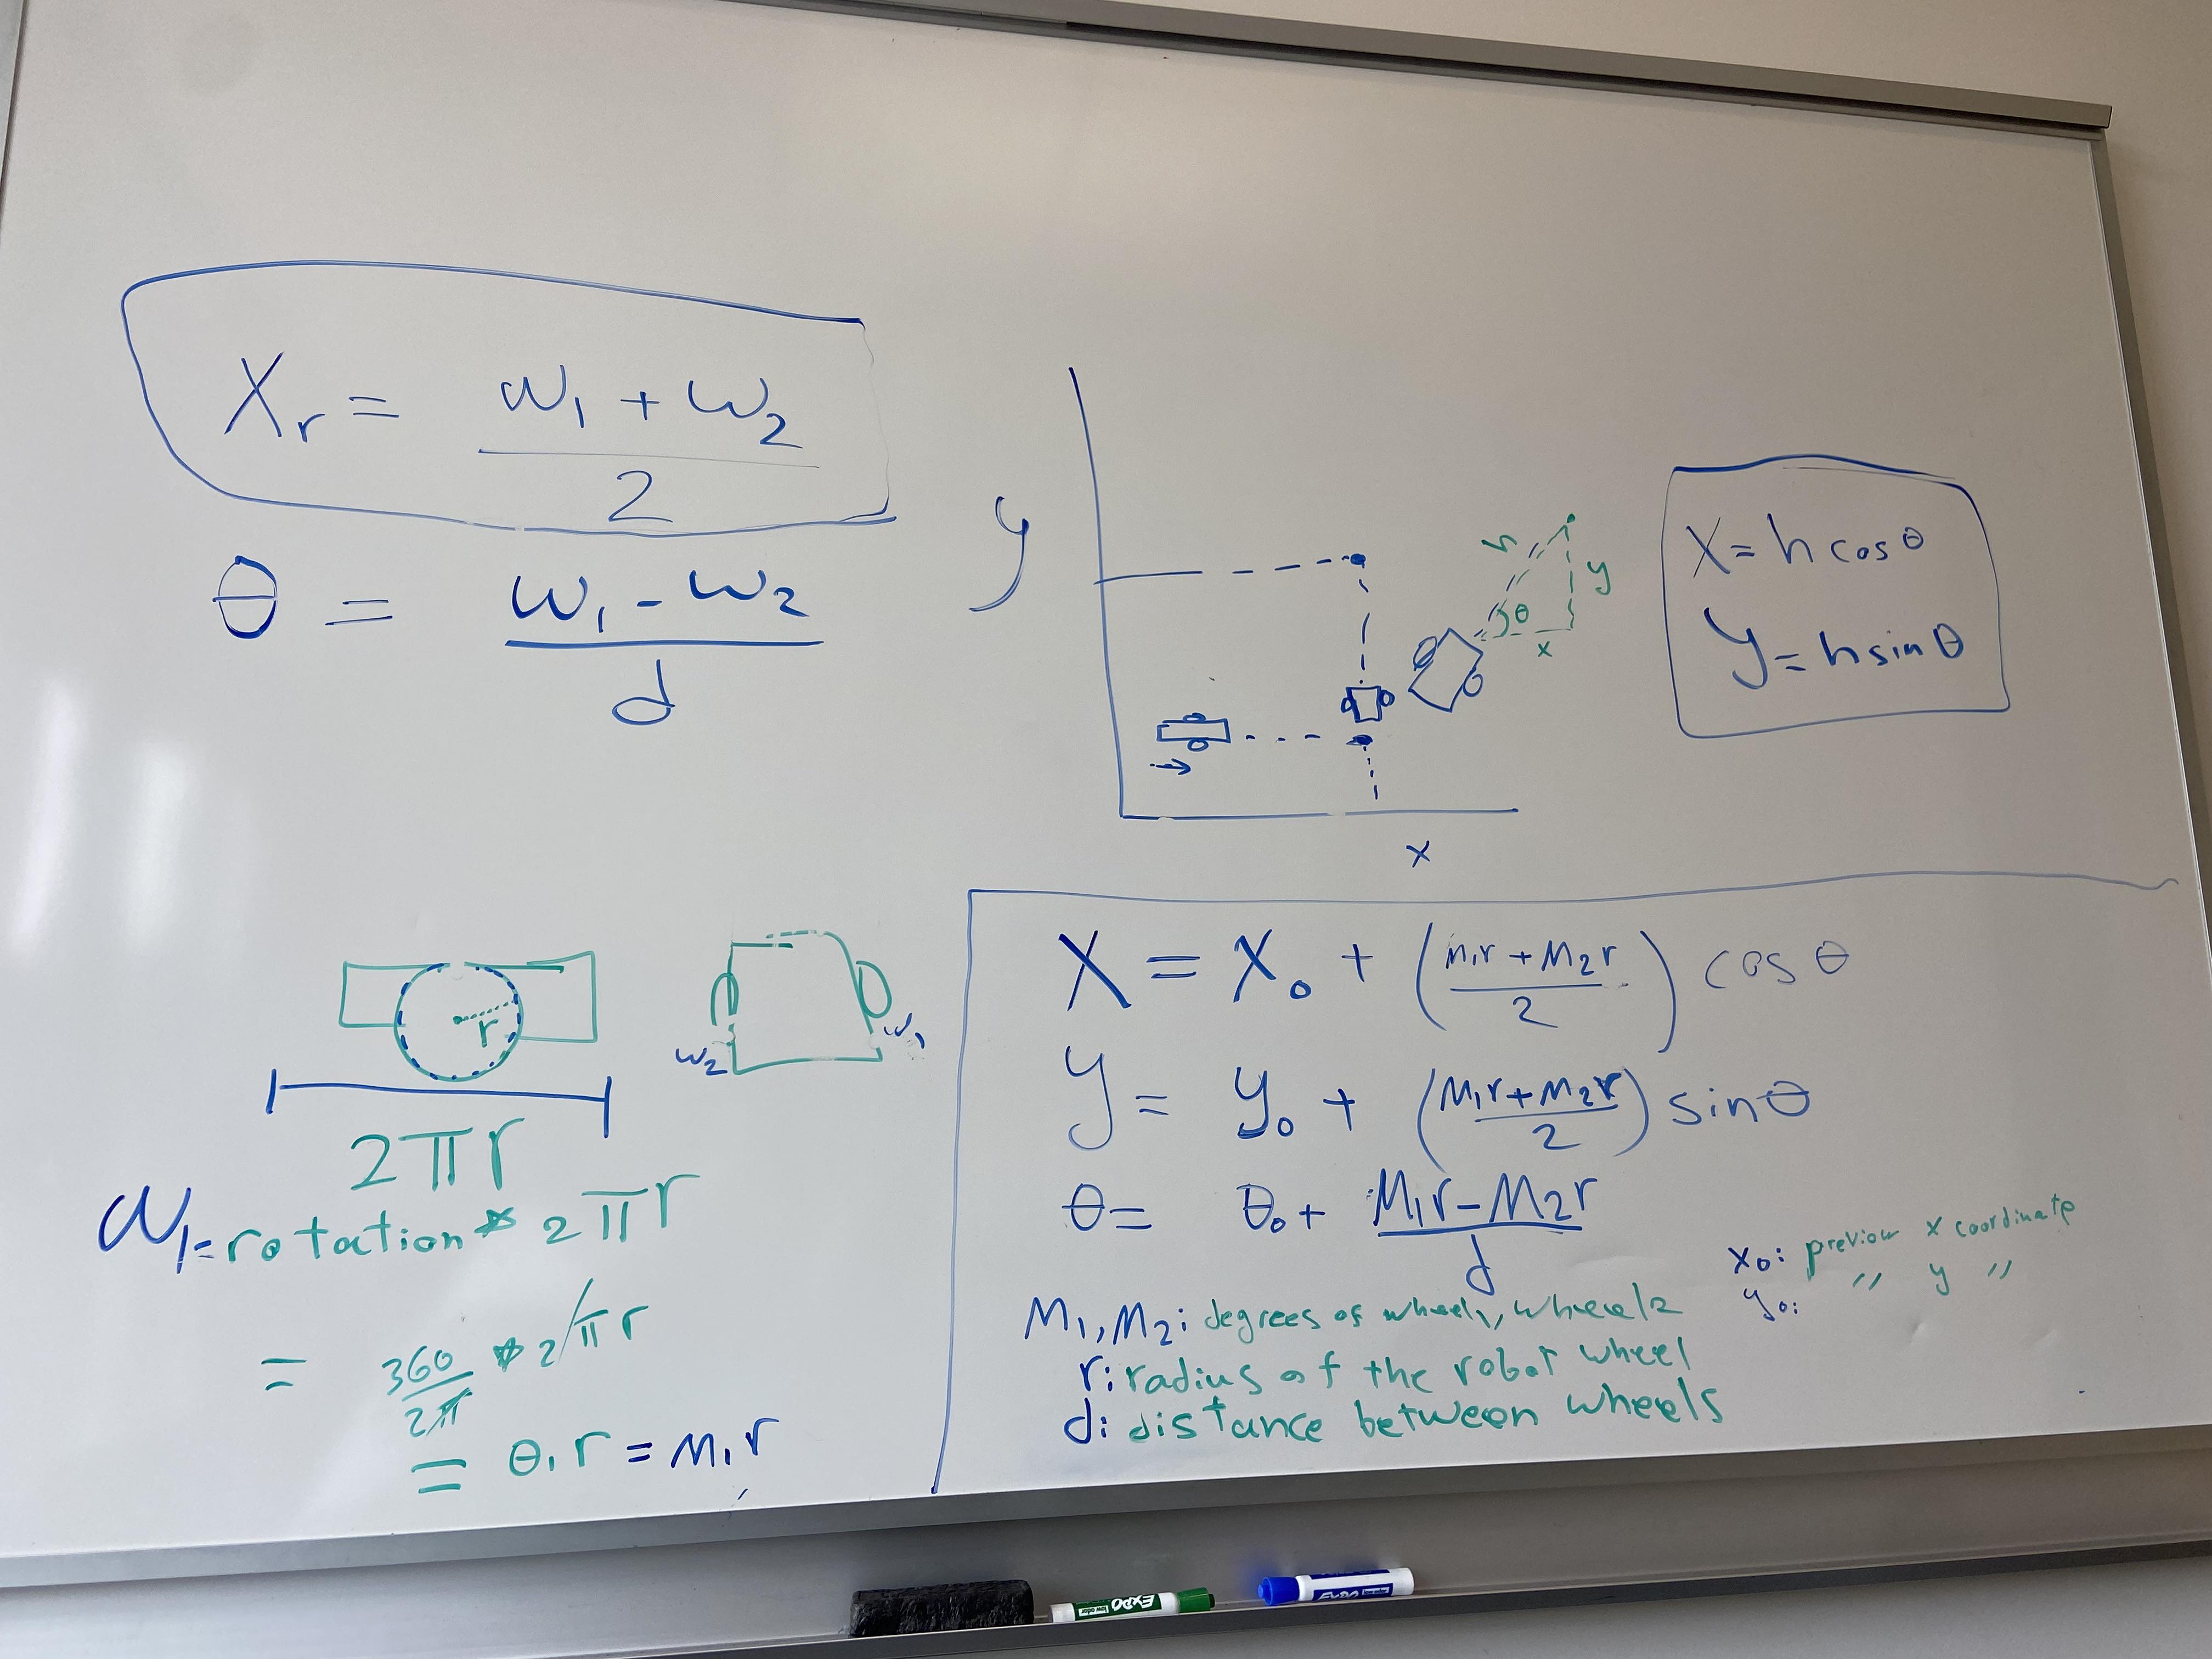 Xr = (ω1 + ω2) / 2
θ = (ω1 - ω2) / d
y
x
h
θ
y
x
x = h cos θ
y = h sin θ
r
2πr
ω2
ω1
ω1 = rotation * 2πr
= 360/2π * 2πr
= θ1 r = M1r
X = X0 + (M1r + M2r / 2) cos θ
y = y0 + (M1r + M2r / 2) sin θ
θ = θ0 + (M1r - M2r) / d
M1, M2: degrees of wheel1, wheel2
r: radius of the robot wheel
d: distance between wheels
x0: previous x coordinate
y0: " y "
EXPO
low odor
EXPO